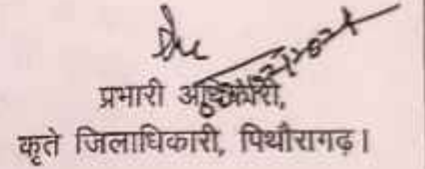 प्रभारी अधिकारी,
कृते जिलाधिकारी, पिथौरागढ़।